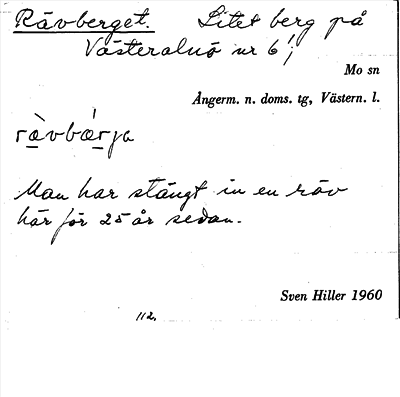 Rävberget. Litet berg på
Västeralnö nr 6¹;
Mo sn
Ångerm. n. doms. tg, Västern. l.
rävbærja
Man har stängt in en räv
här för 25 år sedan.
Sven Hiller 1960
112.